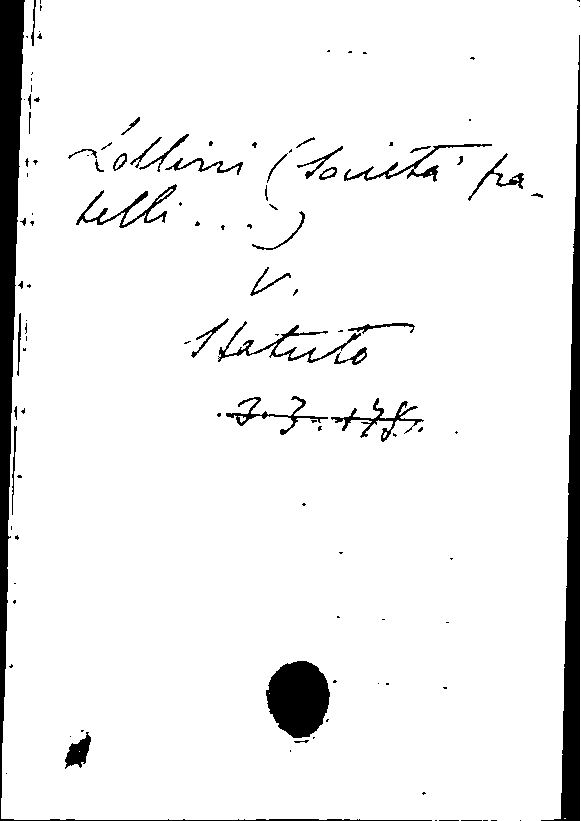 Lollini (Società fra-
telli ...)
V.
Statuto
3.3.178.